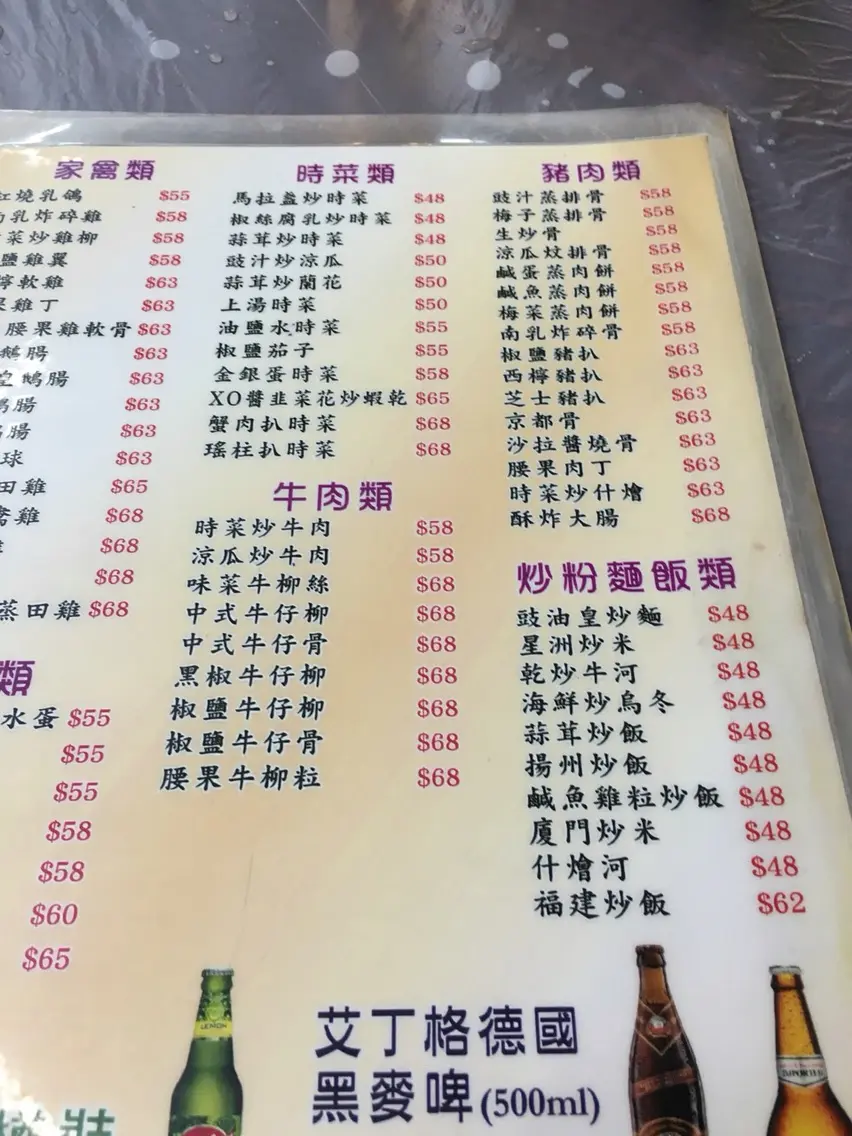 家禽類
紅燒乳鴿 $55
南乳炸碎雞 $58
菜炒雞柳 $58
鹽雞翼 $58
檸軟雞 $63
果雞丁 $63
腰果雞軟骨 $63
鵝腸 $63
鵝腸 $63
腸 $63
腸 $63
球 $63
田雞 $65
雞 $68
$68
$68
蒸田雞 $68
類
水蛋 $55
$55
$55
$58
$58
$60
$65
時菜類
馬拉盞炒時菜 $48
椒絲腐乳炒時菜 $48
蒜茸炒時菜 $48
豉汁炒涼瓜 $50
蒜茸炒蘭花 $50
上湯時菜 $50
油鹽水時菜 $55
椒鹽茄子 $55
金銀蛋時菜 $58
XO醬韭菜花炒蝦乾 $65
蟹肉扒時菜 $68
瑤柱扒時菜 $68
牛肉類
時菜炒牛肉 $58
涼瓜炒牛肉 $58
味菜牛柳絲 $68
中式牛仔柳 $68
中式牛仔骨 $68
黑椒牛仔柳 $68
椒鹽牛仔柳 $68
椒鹽牛仔骨 $68
腰果牛柳粒 $68
豬肉類
豉汁蒸排骨 $58
梅子蒸排骨 $58
生炒骨 $58
涼瓜炆排骨 $58
鹹蛋蒸肉餅 $58
鹹魚蒸肉餅 $58
梅菜蒸肉餅 $58
南乳炸碎骨 $58
椒鹽豬扒 $63
西檸豬扒 $63
芝士豬扒 $63
京都骨 $63
沙拉醬燒骨 $63
腰果肉丁 $63
時菜炒什燴 $63
酥炸大腸 $68
炒粉麵飯類
豉油皇炒麵 $48
星洲炒米 $48
乾炒牛河 $48
海鮮炒烏冬 $48
蒜茸炒飯 $48
揚州炒飯 $48
鹹魚雞粒炒飯 $48
廈門炒米 $48
什燴河 $48
福建炒飯 $62
艾丁格德國
黑麥啤(500ml)
LEMON